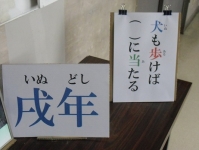 いぬ どし
戌年
犬も歩けば
( )に当たる